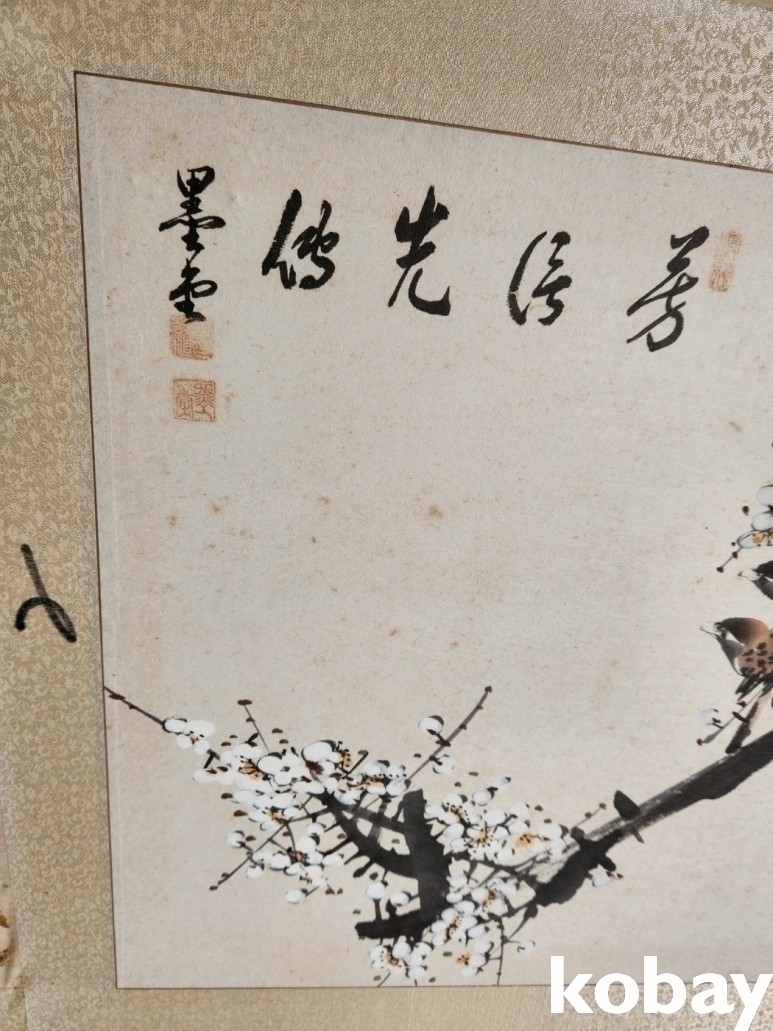 芳信先傳
墨堂
kobay